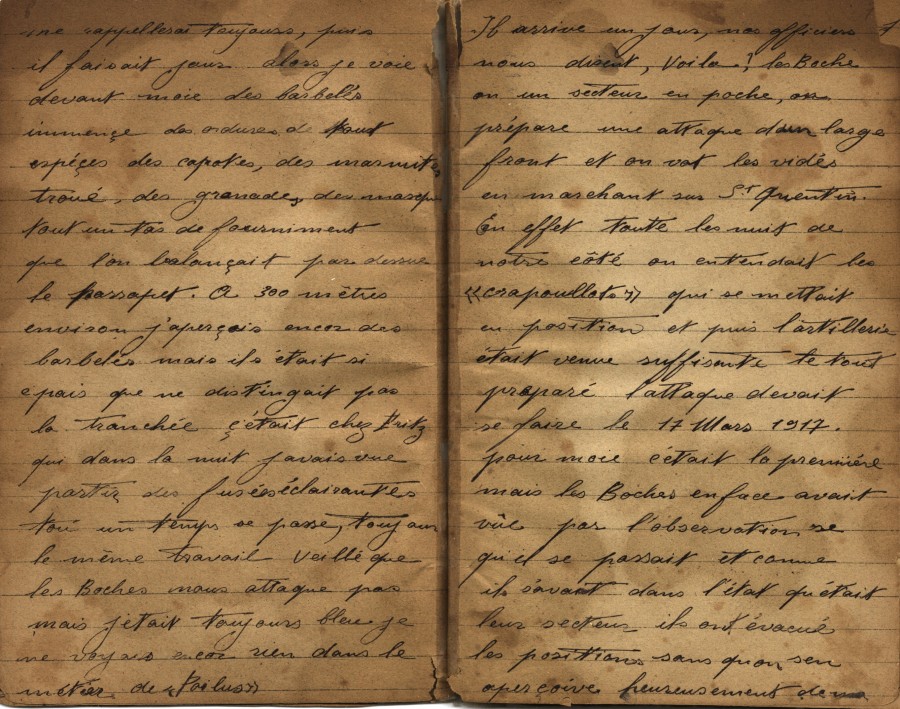 me rappellerai toujours, puis
il faisait jour alors je voie
devant moie des barbelés
immençe des ordures de tout
espéçes des capotes, des marmites
troué, des grenades, des masque
tout un tas de fourniment
que l'on balançait par dessue
le parrapet. A 300 mètres
environ j'aperçois encor des
barbelés mais ils était si
epais que ne distingait pas
la tranchée ç'était chez Fritz
qui dans la nuit j'avais vue
partir des fusées éclairantes
tout un temps se passe, toujours
le même travail Veillé que
les Boches nous attaque pas
mais j'etait toujours bleu je
ne voyais encor rien dans le
métier de "Poilus"
Il arrive un jour, nos officiers
nous disent, Voila ! les Boche
on un secteur en poche, on
prépare une attaque d'un large
front et on vat les vidés
en marchant sur St Quentin.
En effet toute les nuit de
notre côté on entendait les
"crapouillots" qui se mettait
en position et puis l'artillerie
était venue suffisante le tout
préparé l'attaque devait
se faire le 17 Mars 1917.
pour moie c'était la première
mais les Boches en face avait
vûe par l'observation se
qui se passait et comme
ils savait dans l'état qu'était
leur secteur ils ont évacué
les positions sans qu'on s'en
aperçoive heureusement